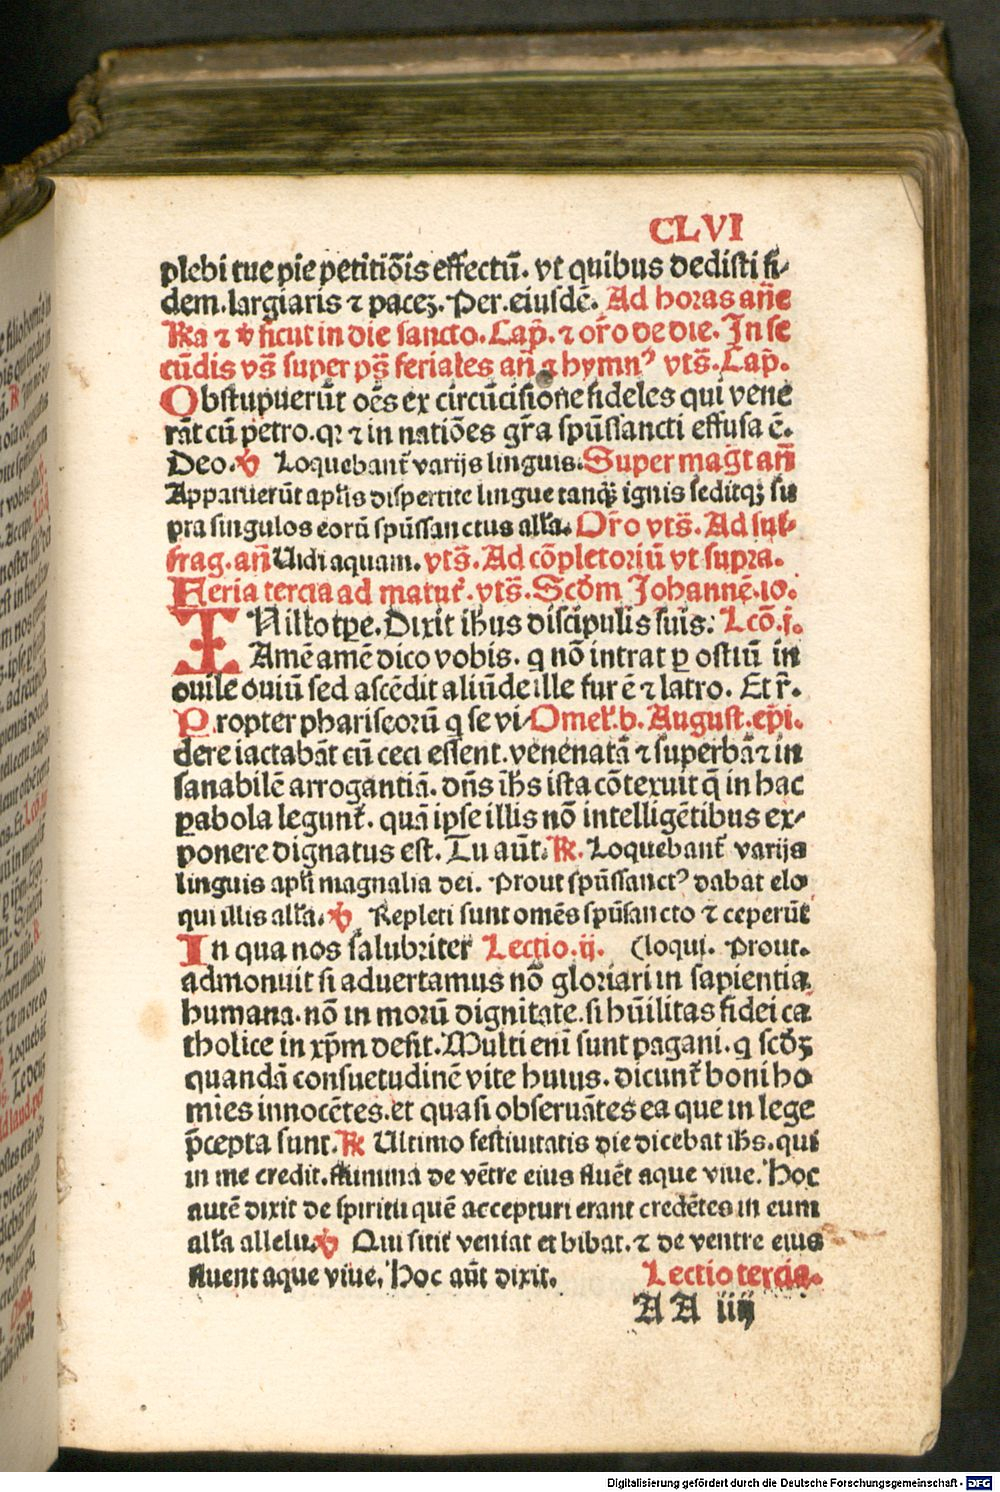 CLVI
plebi tue pie petitiõis effectũ. vt quibus dedisti fi⸗
dem. largiaris ⁊ pacẽ. Per. eiusdẽ. Ad horas añe
℟a ⁊ ℣ sicut in die sancto. Cap̃. ⁊ or̃o de die. In se
cũdis vs̃ super ps̃ feriales añ ⁊ hymnꝰ vts̃. Cap̃.
Obstupuerũt oẽs ex circũcisiõne fideles qui vene
rãt cũ petro. qꝛ ⁊ in natiões gr̃a spũssancti effusa ẽ.
Deo. ℣ Loquebant̃ varijs linguis. Super mag̃t añ
Apparuerũt apl̃is dispertite lingue tanqꝫ ignis seditqꝫ su
pra singulos eorũ spũssanctus all'a. Or̃o vts̃. Ad suf⸗
frag. añ Uidi aquam. vts̃. Ad cõpletoriũ vt supra.
Feria tercia ad matut̃. vts̃. Scd̃m Johannẽ. io.
IN illo tp̃e. Dixit ih̃us discipulis suis: Lcõ. j.
Amẽ amẽ dico vobis. q nõ intrat ꝑ ostiũ in
ouile ouiũ sed ascẽdit aliũde ille fur ẽ ⁊ latro. Et r̃.
Propter phariseorũ q se vi⸗ Omel'. b. August. ep̃i.
dere iactabãt cũ ceci essent. venenatã ⁊ superbã ⁊ in
sanabilẽ arrogantiã. dñs ih̃s ista cõtexuit q̃ in hac
ꝑabola legunt̃. quã ipse illis nõ intelligẽtibus ex⸗
ponere dignatus est. Tu aũt. ℟. Loquebant̃ varijs
linguis apl̃i magnalia dei. Prout spũssanctꝰ dabat elo
qui illis all'a. ℣ Repleti sunt omẽs spũsancto ⁊ ceperũt
In qua nos salubriter Lectio. ij. (loqui. Prout.
admonuit si aduertamus nõ gloriari in sapientia
humana. nõ in morũ dignitate. si hũilitas fidei ca
tholice in xp̃m desit. Multi eni sunt pagani. q scd̃ꝫ
quandã consuetudinẽ vite huius. dicunt̃ boni ho
mies innocẽtes. et quasi obseruãtes ea que in lege
p̃cepta sunt. ℟ Ultimo festiuitatis die dicebat ih̃s. qui
in me credit. flumina de vẽtre eius fluẽt aque viue. Hoc
autẽ dixit de spiritu quẽ accepturi erant credẽtes in eum
all'a allelu. ℣ Qui sitit veniat et bibat. ⁊ de ventre eius
fluent aque viue. Hoc aũt dixit. Lectio tercia.
AA iiij
Digitalisierung gefördert durch die Deutsche Forschungsgemeinschaft - DFG